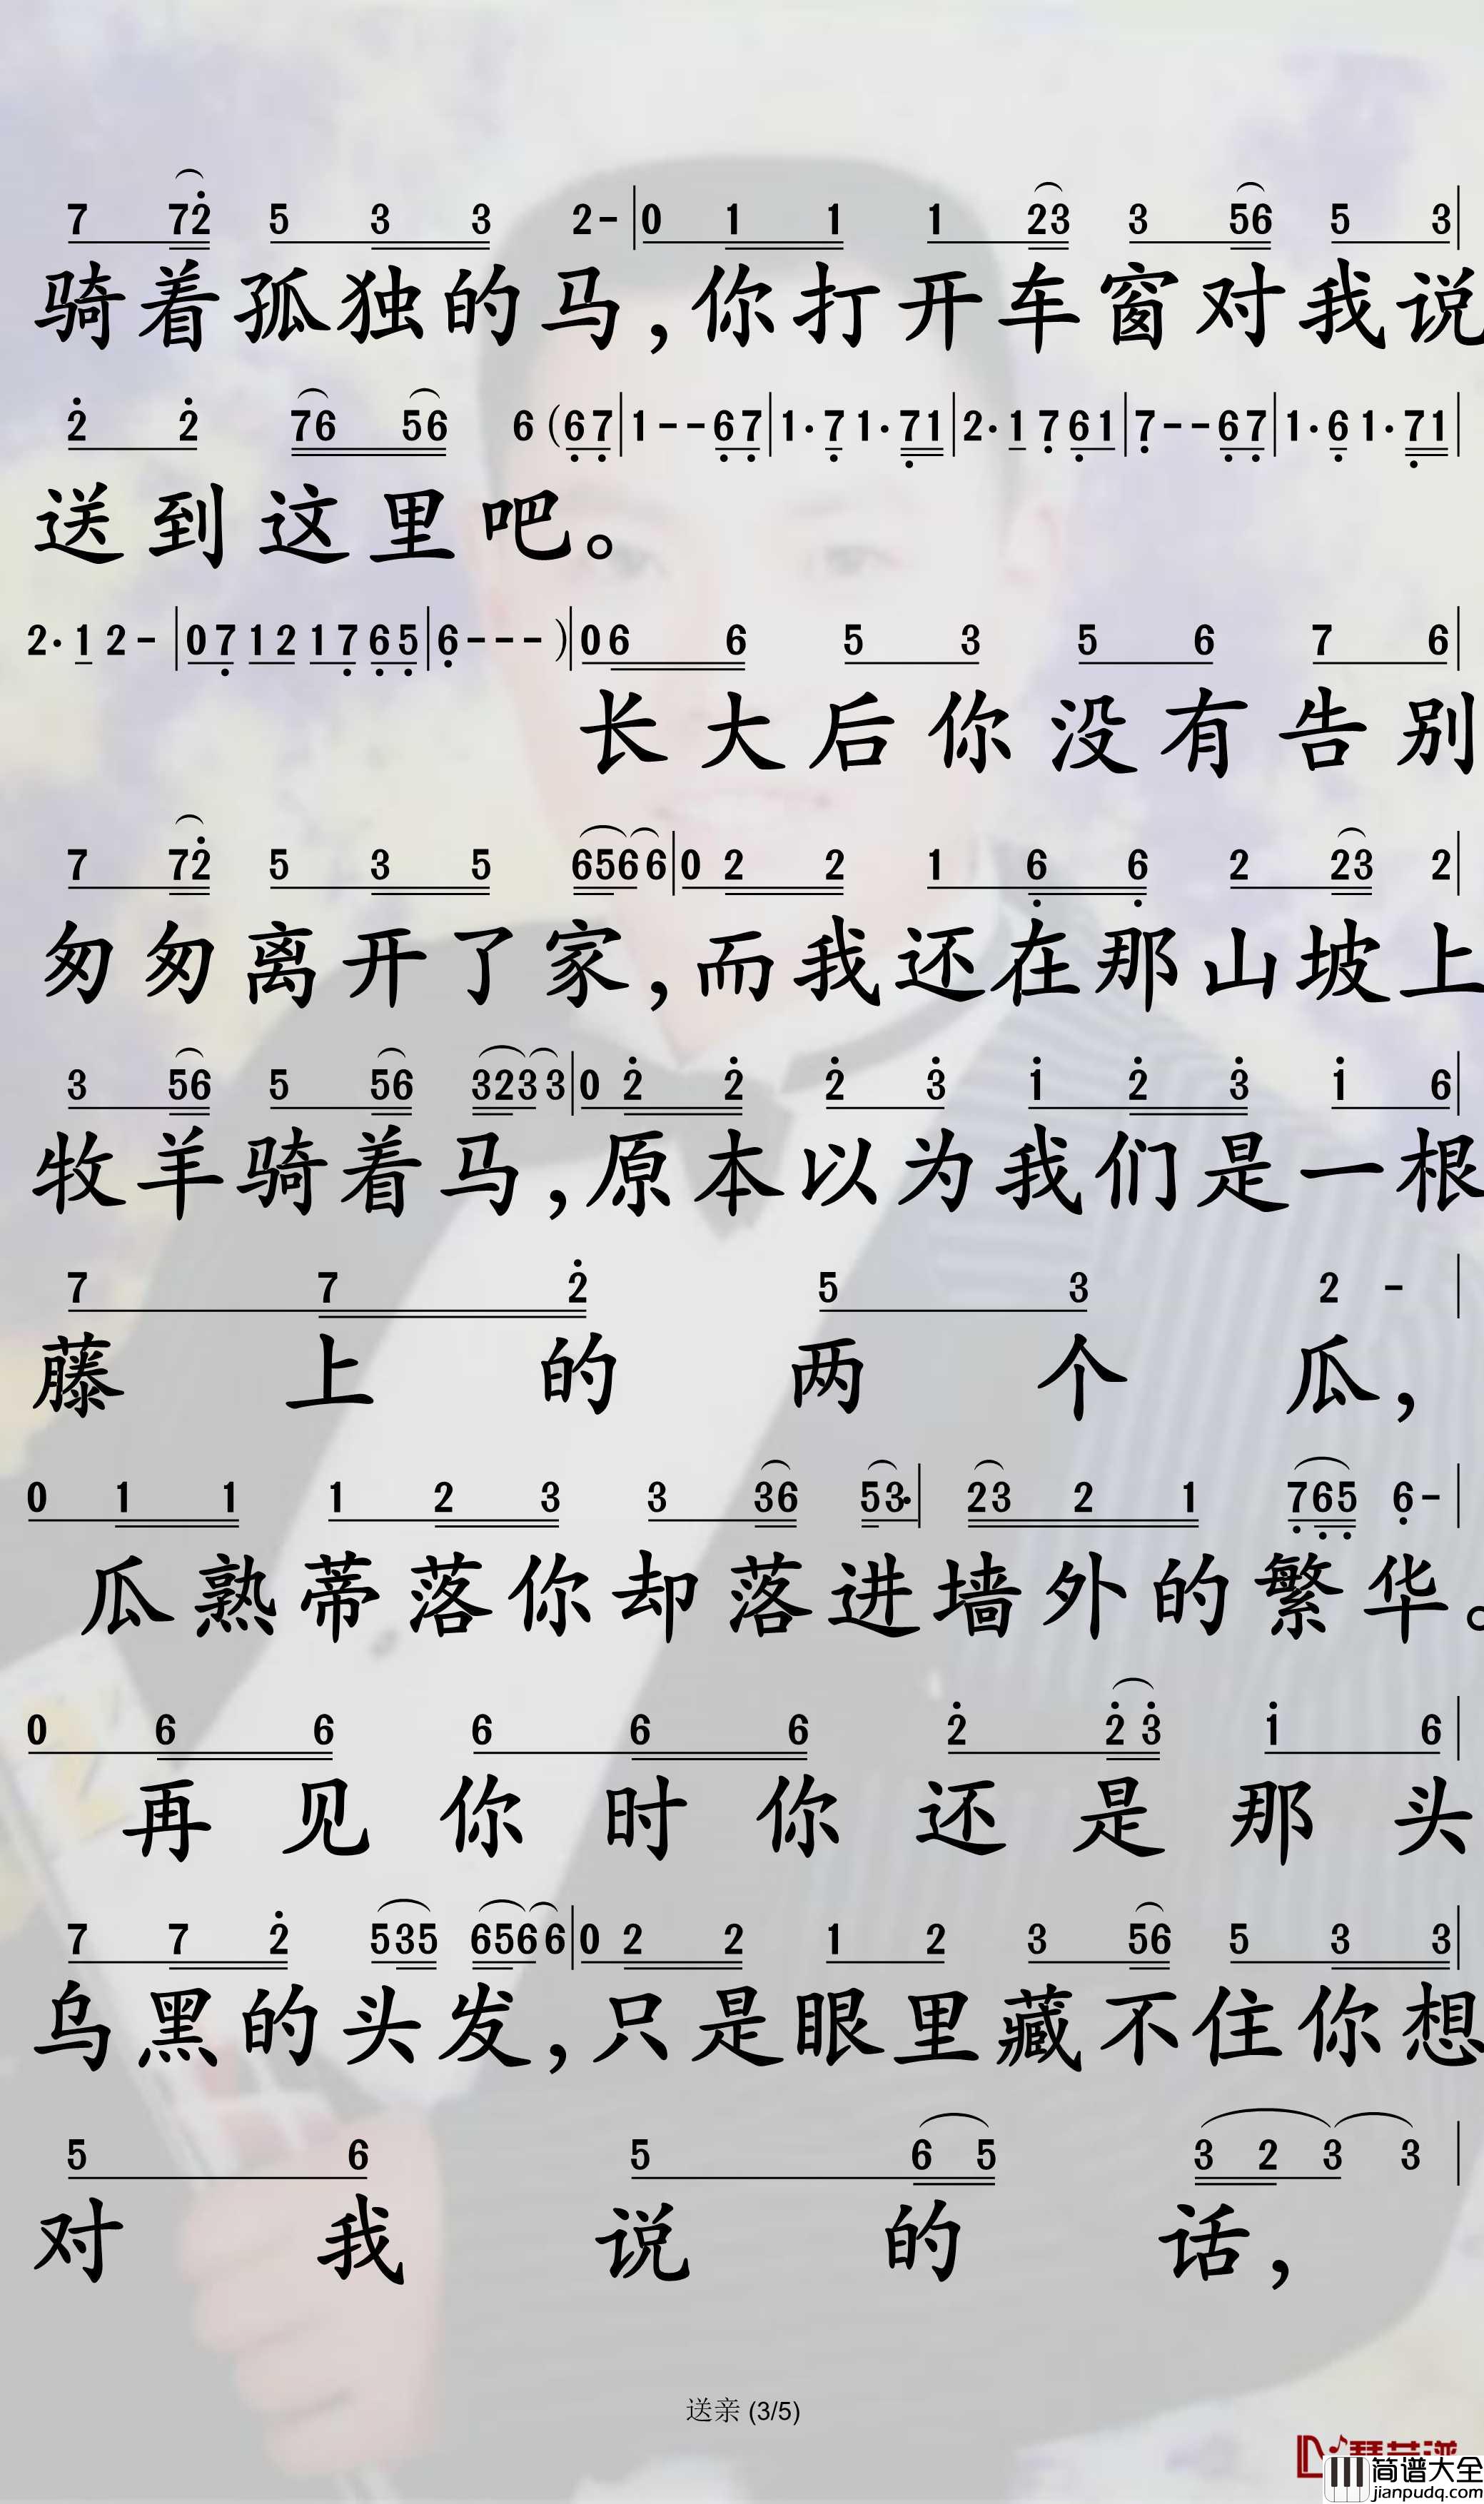 7 72̇ 5 3 3 2- | 0 1 1 1 23 3 56 5 3 |
骑着孤独的马，你打开车窗对我说
2̇ 2̇ 76 56 6 (6̣7̣ | 1--6̣7̣ | 1·7̣1·7̣1 | 2·17̣6̣1 | 7̣--6̣7̣ | 1·6̣1·7̣1 |
送到这里吧。
2·12- | 07̣1217̣6̣5̣ | 6̣--- ) | 06 6 5 3 5 6 7 6 |
长大后你没有告别
7 72̇ 5 3 5 6566 | 0 2 2 1 6̣ 6̣ 2 23 2 |
匆匆离开了家，而我还在那山坡上
3 56 5 56 3233 | 0 2̇ 2̇ 2̇ 3̇ 1̇ 2̇ 3̇ 1̇ 6 |
牧羊骑着马，原本以为我们是一根
7 7 2̇ 5 3 2 - |
藤上的两个瓜，
0 1 1 1 2 3 3 36 53· | 23 2 1 7̣6̣5̣ 6̣- |
瓜熟蒂落你却落进墙外的繁华。
0 6 6 6 6 6 2̇ 2̇3̇ 1̇ 6 |
再见你时你还是那头
7 7 2̇ 535 6566 | 0 2 2 1 2 3 56 5 3 3 |
乌黑的头发，只是眼里藏不住你想
5 6 5 6 5 3 2 3 3 |
对我说的话，
送亲 (3/5)
简谱大全
jianpudq.com